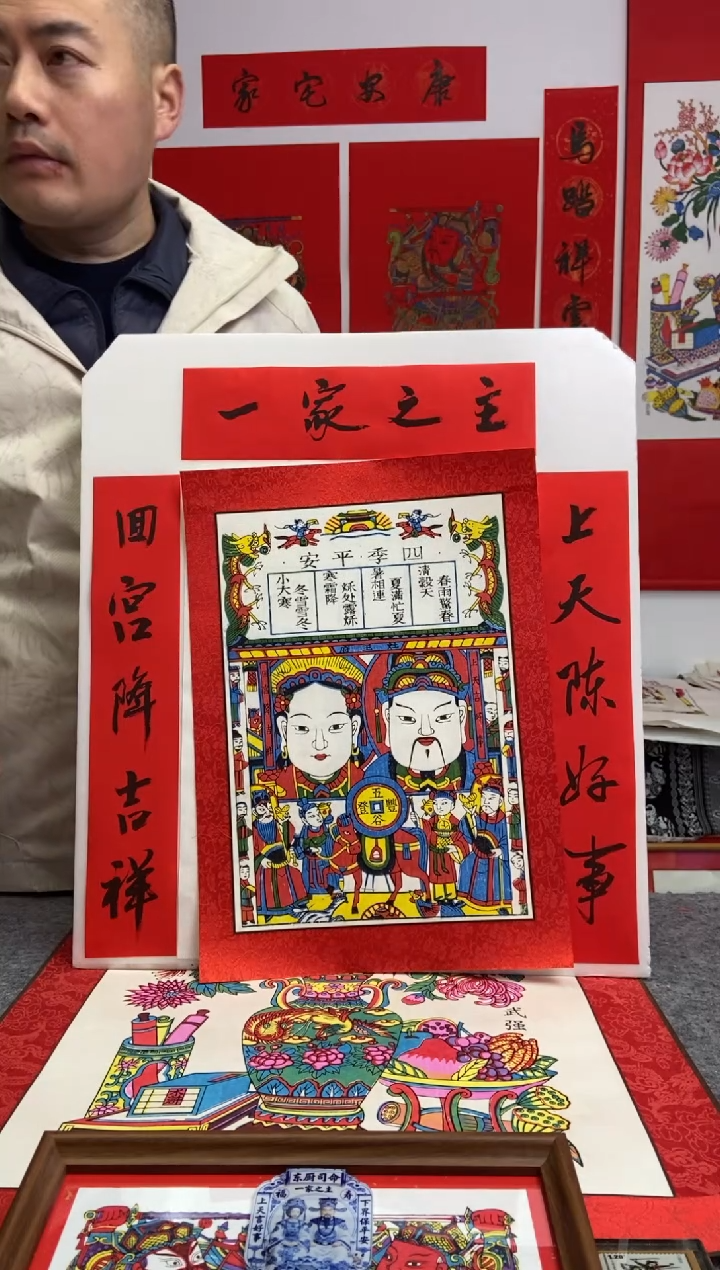 家宅安康
馬踏祥雲
一家之主
上天陈好事
回宫降吉祥
四季平安
春雨驚春
清穀天
夏滿忙夏
暑相連
秌处露秌
寒霜降
冬雪雪冬
小大寒
五谷豐登
武强
东厨司命
一家之主
上天言好事
下界保平安